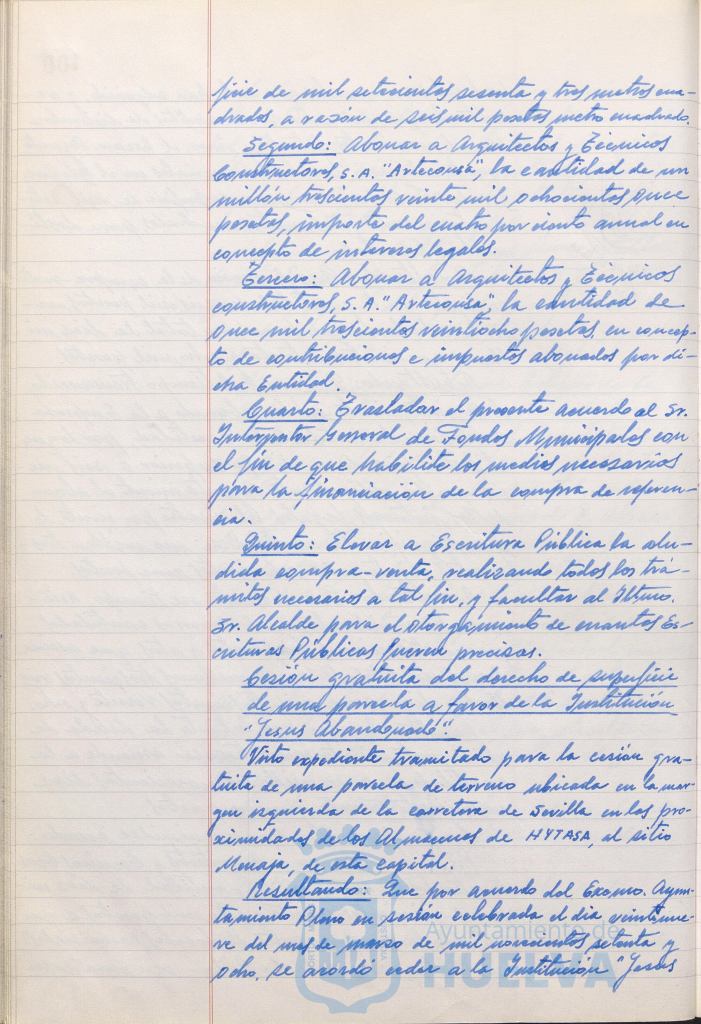 ficie de mil setecientos sesenta y tres metros cua-
drados, a razón de seis mil pesetas metro cuadrado.
Segundo: Abonar a Arquitectos y Técnicos
Constructores, S.A. "Arteconsa", la cantidad de un
millón trescientos veinte mil ochocientos once
pesetas, importe del cuatro por ciento anual en
concepto de intereses legales.
Tercero: Abonar a Arquitectos y Técnicos
constructores, S.A. "Arteconsa", la cantidad de
once mil trescientos veintiocho pesetas, en concep-
to de contribuciones e impuestos abonados por di-
cha Entidad.
Cuarto: Trasladar el presente acuerdo al Sr.
Interventor General de Fondos Municipales con
el fin de que habilite los medios necesarios
para la financiación de la compra de referen-
cia.
Quinto: Elevar a Escritura Pública la alu-
dida compra-venta, realizando todos los trá-
mites necesarios a tal fin, y facultar al Iltmo.
Sr. Alcalde para el otorgamiento de cuantas Es-
crituras Públicas fueren precisas.
Cesión gratuita del derecho de superficie
de una parcela a favor de la Institución
"Jesus Abandonado".
Visto expediente tramitado para la cesión gra-
tuita de una parcela de terreno ubicada en la mar-
gen izquierda de la carretera de Sevilla en las pro-
ximidades de los Almacenes de HYTASA, al sitio
Monaja, de esta capital.
Resultando: Que por acuerdo del Excmo. Ayun-
tamiento Pleno en sesión celebrada el dia veintinue-
ve del mes de marzo de mil novecientos setenta y
ocho, se acordó ceder a la Institución "Jesus
Ayuntamiento de
HUELVA